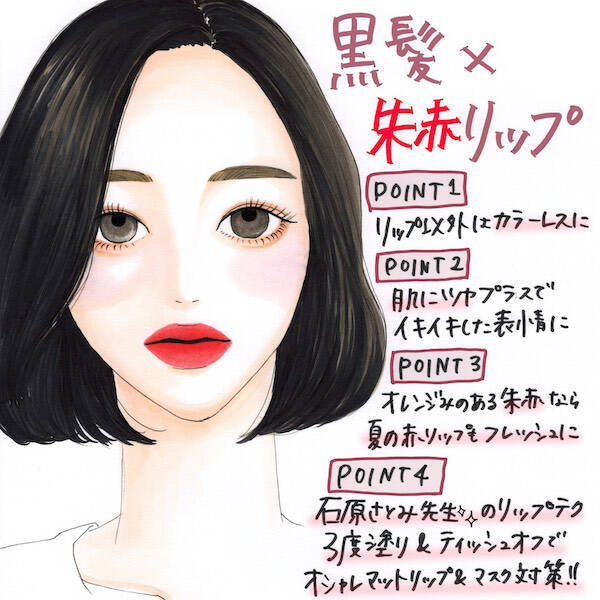 黒髪×
朱赤リップ
POINT1
リップ以外はカラーレスに
POINT2
肌にツヤプラスで
イキイキした表情に
POINT3
オレンジみのある朱赤なら
夏の赤リップもフレッシュに
POINT4
石原さとみ先生のリップテク
3度塗り&ティッシュオフで
オシャレマットリップ&マスク対策!!